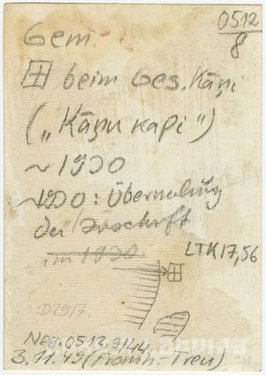 0512
8
Gem.
beim Ges. Kāṇi
(„Kāṇu kapi")
~ 1900
~ 1900: Übermalung
der Inschrift
im 1900
LTK 17,56
D2917.
Neg. 0512, 9144
3.11.49 (Fromh.-Treu)